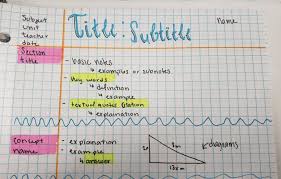 Subject
unit
teacher
date
Title: Subtitle
Name
Section
title
- basic notes
↳ examples or subnotes
- Key words
↳ definition
↳ example
- textual quotes (citation
↳ explanation
concept
name
- explanation
- example
↳ answer
5m
12cm
diagrams